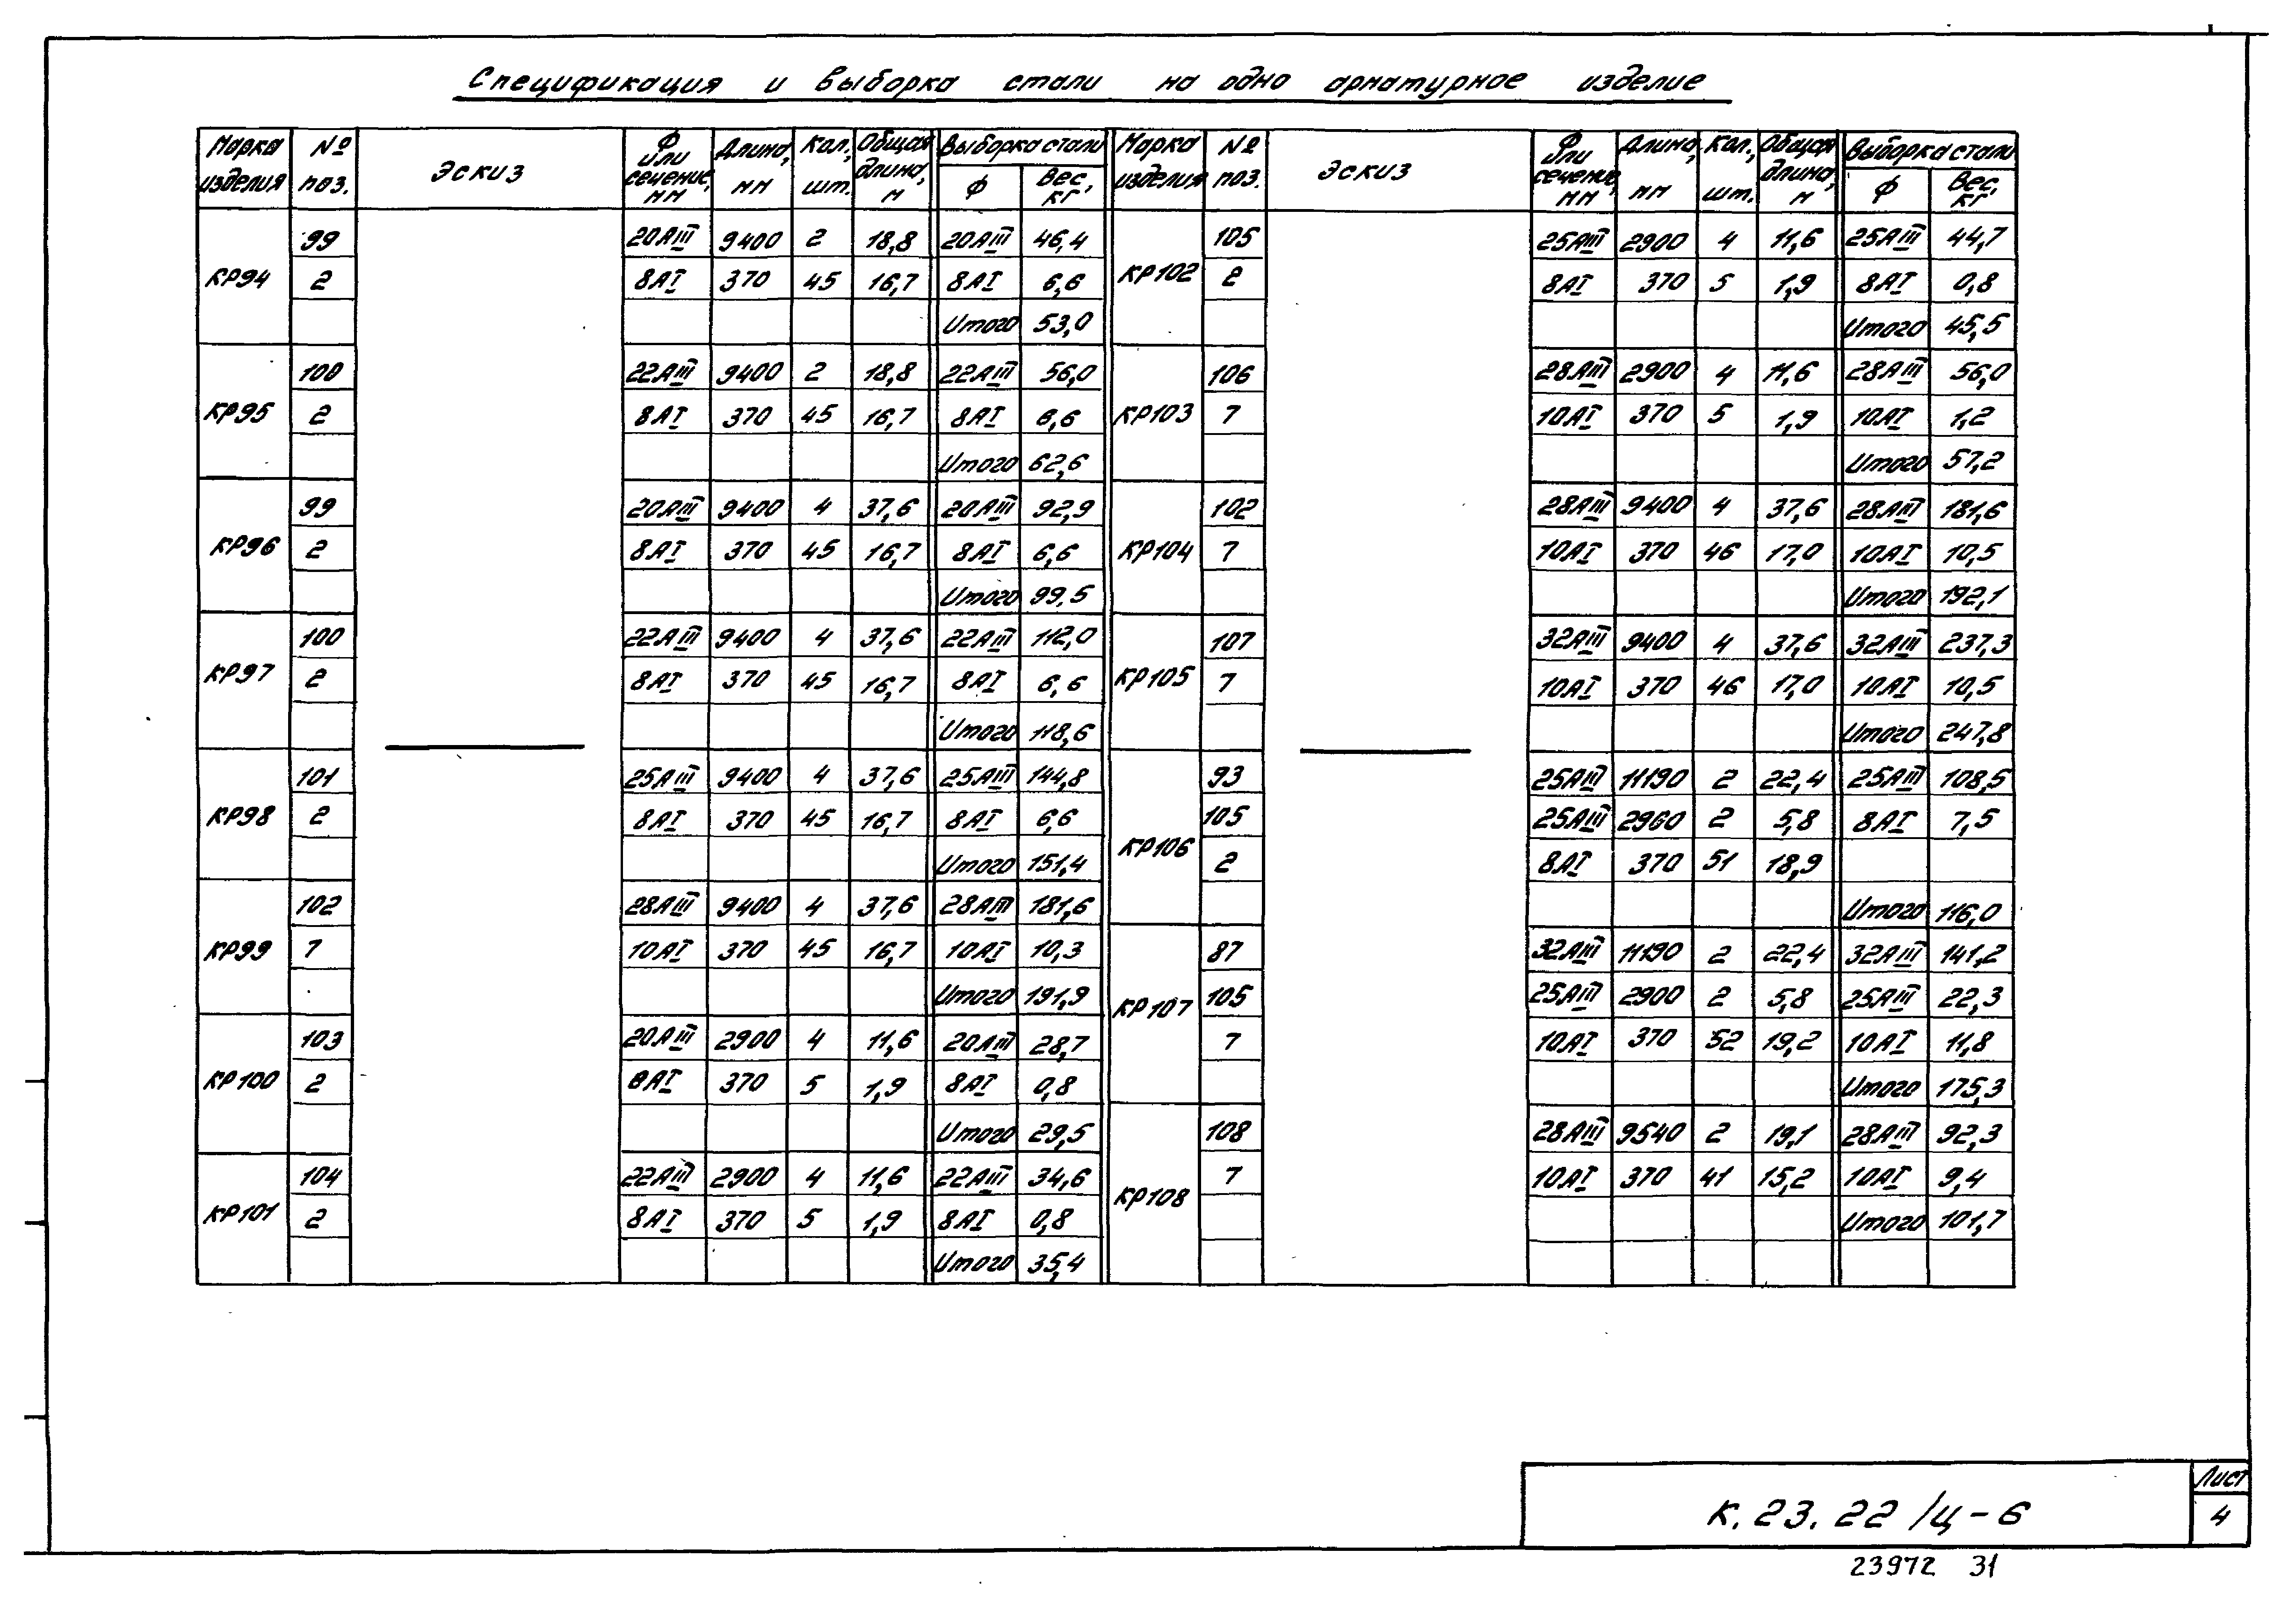 Спецификация и выборка стали на одно арматурное изделие
Марка изделия № поз. Эскиз Ф или сечение, мм Длина, мм Кол., шт. Общая длина, м Выборка стали Ф Вес, кг
КР94 99 20АIII 9400 2 18,8 20АIII 46,4
2 8АI 370 45 16,7 8АI 6,6
Итого 53,0
КР95 100 22АIII 9400 2 18,8 22АIII 56,0
2 8АI 370 45 16,7 8АI 6,6
Итого 62,6
КР96 99 20АIII 9400 4 37,6 20АIII 92,9
2 8АI 370 45 16,7 8АI 6,6
Итого 99,5
КР97 100 22АIII 9400 4 37,6 22АIII 112,0
2 8АI 370 45 16,7 8АI 6,6
Итого 118,6
КР98 101 25АIII 9400 4 37,6 25АIII 144,8
2 8АI 370 45 16,7 8АI 6,6
Итого 151,4
КР99 102 28АIII 9400 4 37,6 28АIII 181,6
7 10АI 370 45 16,7 10АI 10,3
Итого 191,9
КР100 103 20АIII 2900 4 11,6 20АIII 28,7
2 8АI 370 5 1,9 8АI 0,8
Итого 29,5
КР101 104 22АIII 2900 4 11,6 22АIII 34,6
2 8АI 370 5 1,9 8АI 0,8
Итого 35,4
Марка изделия № поз. Эскиз Ф или сечение, мм Длина, мм Кол., шт. Общая длина, м Выборка стали Ф Вес, кг
КР102 105 25АIII 2900 4 11,6 25АIII 44,7
2 8АI 370 5 1,9 8АI 0,8
Итого 45,5
КР103 106 28АIII 2900 4 11,6 28АIII 56,0
7 10АI 370 5 1,9 10АI 1,2
Итого 57,2
КР104 102 28АIII 9400 4 37,6 28АIII 181,6
7 10АI 370 46 17,0 10АI 10,5
Итого 192,1
КР105 107 32АIII 9400 4 37,6 32АIII 237,3
7 10АI 370 46 17,0 10АI 10,5
Итого 247,8
КР106 93 25АIII 11190 2 22,4 25АIII 108,5
105 25АIII 2960 2 5,8 8АI 7,5
2 8АI 370 51 18,9
Итого 116,0
КР107 87 32АIII 11190 2 22,4 32АIII 141,2
105 25АIII 2900 2 5,8 25АIII 22,3
7 10АI 370 52 19,2 10АI 11,8
Итого 175,3
КР108 108 28АIII 9540 2 19,1 28АIII 92,3
7 10АI 370 41 15,2 10АI 9,4
Итого 101,7
К.23.22/Ц-6
Лист
4
23972 31